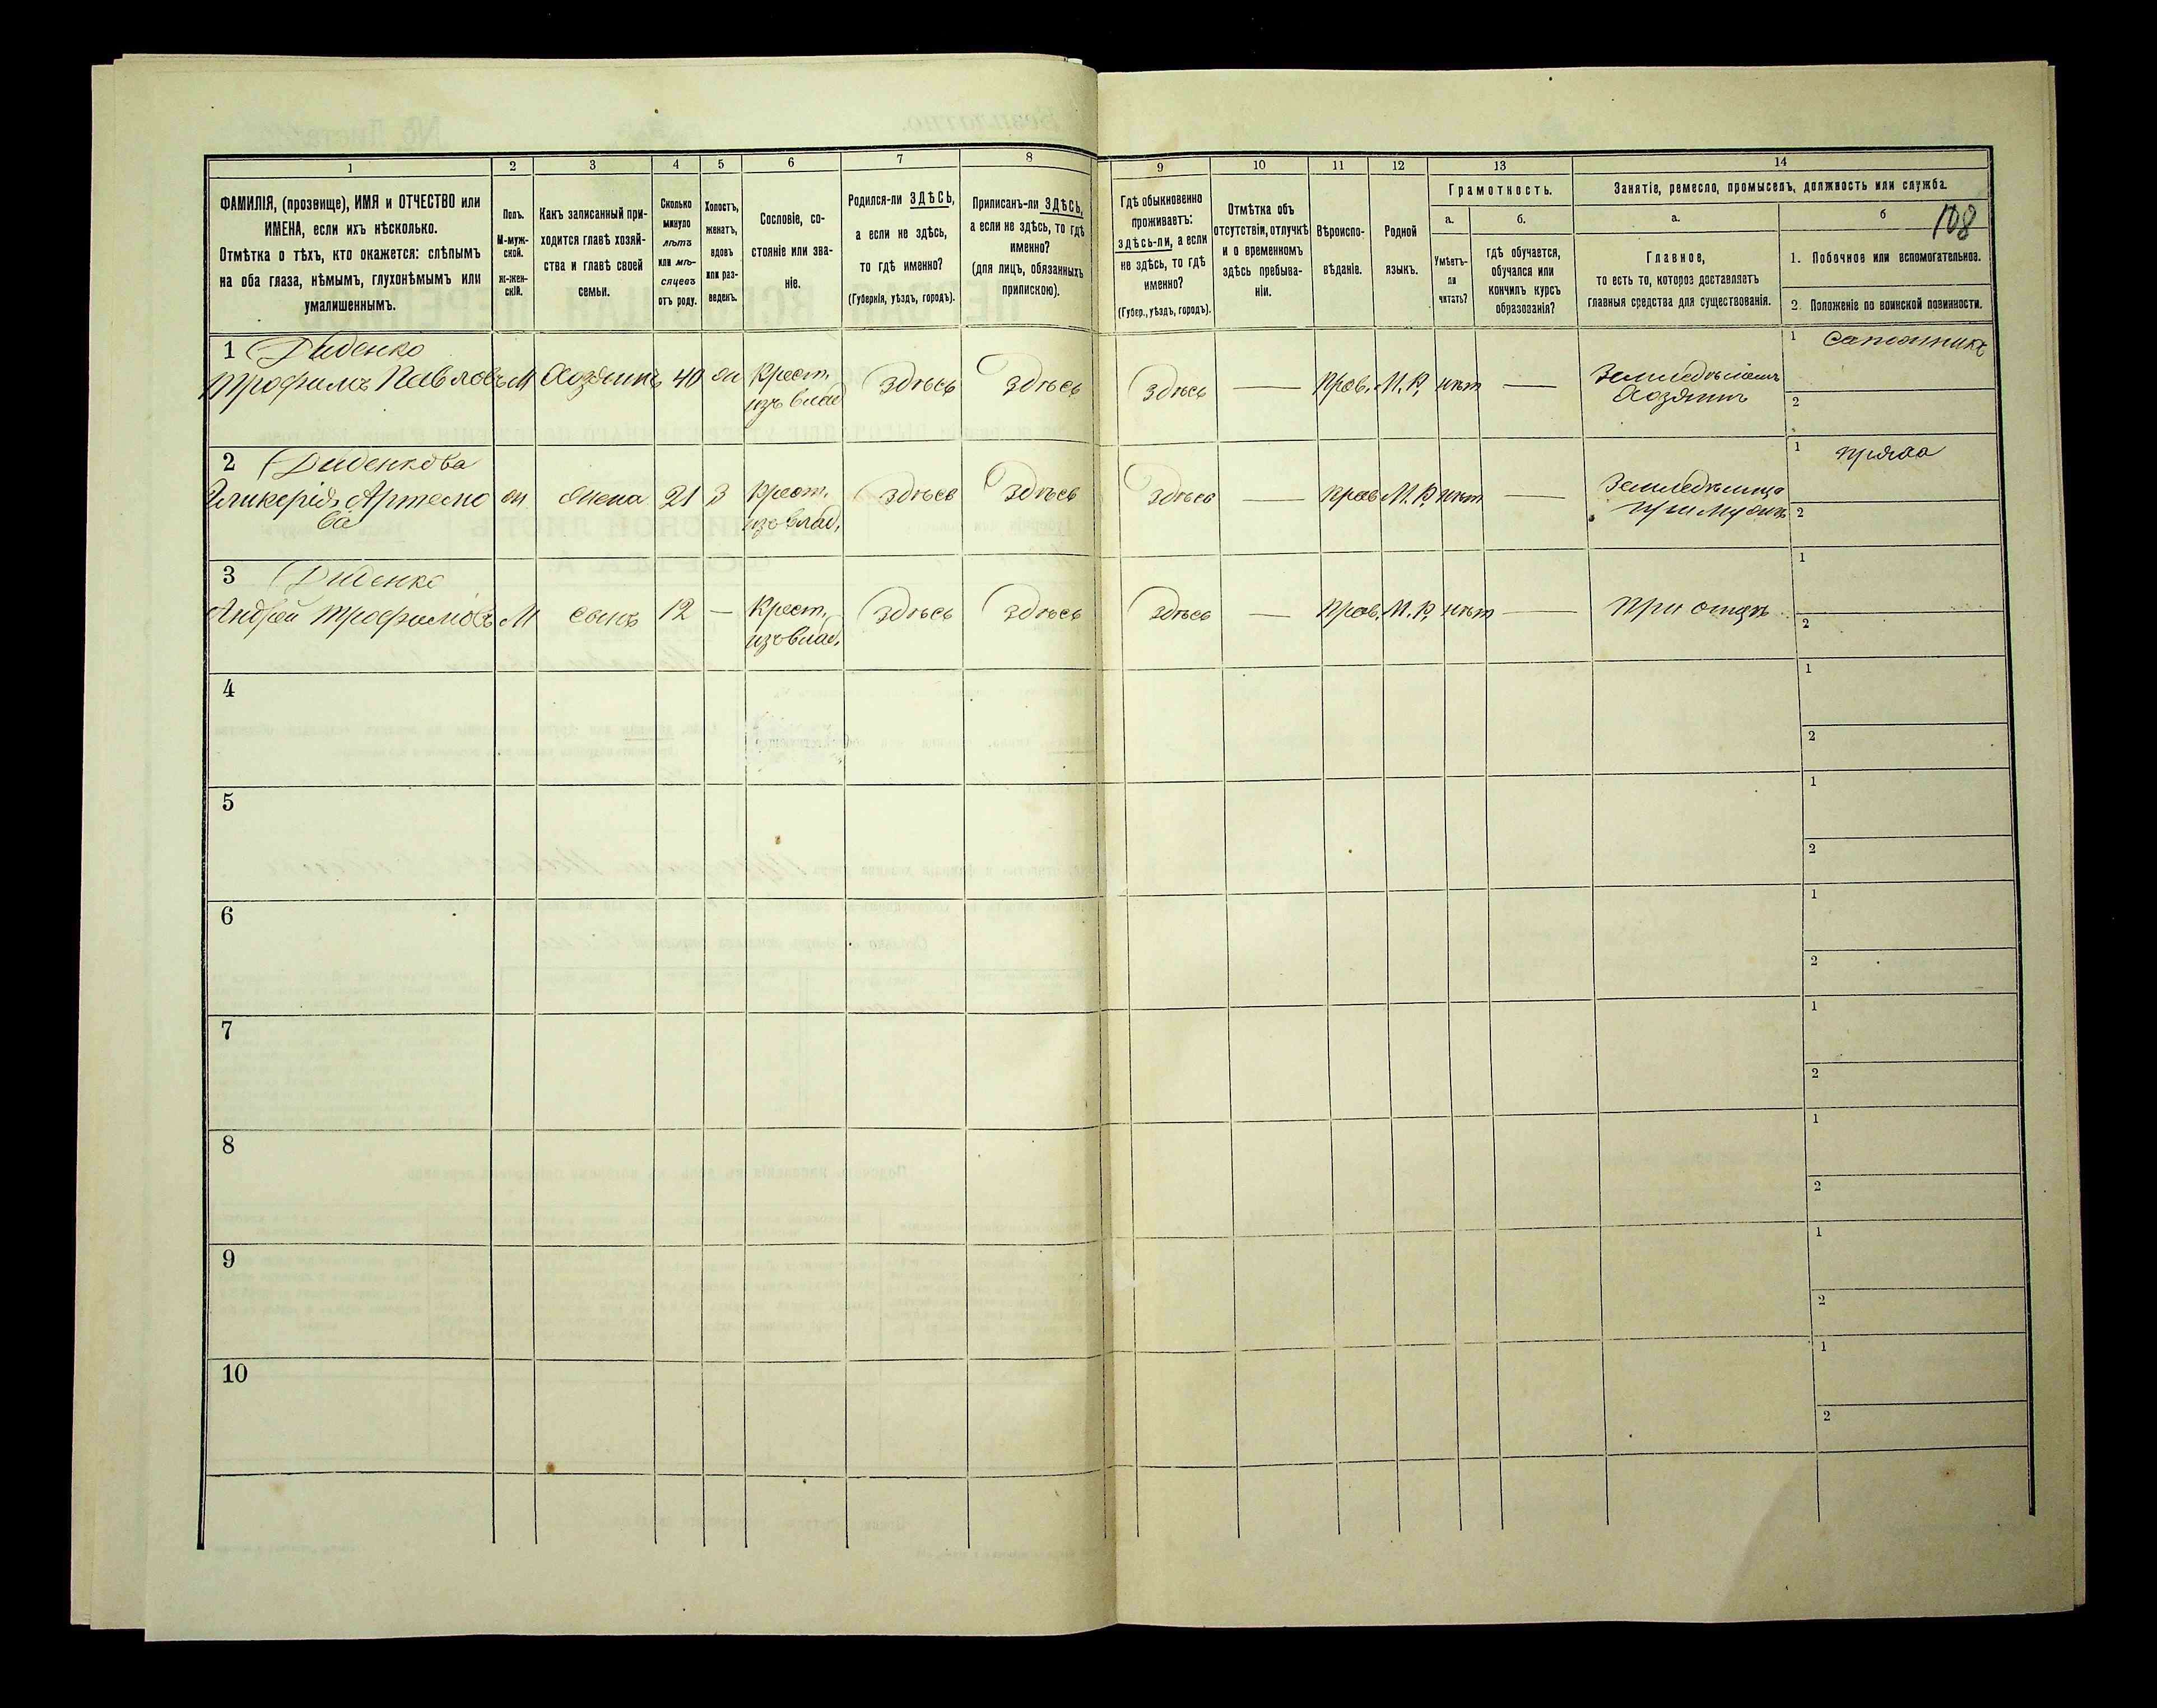 1 2 3 4 5 6 7 8 9 10 11 12 13 14
ФАМИЛІЯ, (прозвище), ИМЯ и ОТЧЕСТВО или
ИМЕНА, если ихъ нѣсколько.
Отмѣтка о тѣхъ, кто окажется: слѣпымъ
на оба глаза, нѣмымъ, глухонѣмымъ или
умалишеннымъ.
Полъ.
М-муж-
ской.
Ж-жен-
скій.
Какъ записанный при-
ходится главѣ хозяй-
ства и главѣ своей
семьи.
Сколько
минуло
лѣтъ
или мѣ-
сяцевъ
отъ роду.
Холостъ,
женатъ,
вдовъ
или раз-
веденъ.
Сословіе, со-
стояніе или зва-
ніе.
Родился-ли ЗДѢСЬ,
а если не здѣсь,
то гдѣ именно?
(Губернія, уѣздъ, городъ).
Приписанъ-ли ЗДѢСЬ,
а если не здѣсь, то гдѣ
именно?
(для лицъ, обязанныхъ
припискою).
Гдѣ обыкновенно
проживаетъ:
здѣсь-ли, а если
не здѣсь, то гдѣ
именно?
(Губер., уѣздъ, городъ).
Отмѣтка объ
отсутствіи, отлучкѣ
и о временномъ
здѣсь пребыва-
ніи.
Вѣроиспо-
вѣданіе.
Родной
языкъ.
Грамотность.
а.
Умѣетъ-
ли
читать?
б.
гдѣ обучается,
обучался или
кончилъ курсъ
образованія?
Занятіе, ремесло, промыселъ, должность или служба.
а.
Главное,
то есть то, которое доставляетъ
главныя средства для существованія.
б
108
1. Побочное или вспомогательное.
2. Положеніе по воинской повинности.
1 Диденко
Трофимъ Павловъ М Хозяинъ 40 ж Крест.
изъ влад
здѣсь здѣсь здѣсь — Прав. М.Р. нѣт —
Хозяинъ
1 Сапожникъ
2
2 Диденкова
Гликерія Артемо
ва
ж жена 21 З Крест.
изъ влад.
здѣсь здѣсь здѣсь — Прав М.Р. нѣт —
при мужѣ
1 пряха
2
3 Диденко
Андрей Трофимовъ М сынъ 12 — Крест.
изъ влад.
здѣсь здѣсь здѣсь — Прав. М.Р. нѣт — при отцѣ
1
2
4 1
2
5 1
2
6 1
2
7 1
2
8 1
2
9 1
2
10 1
2